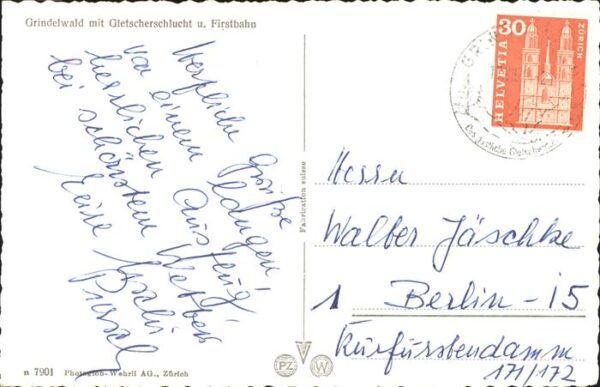 Grindelwald mit Gletscherschlucht u. Firstbahn
Herzliche Grüße
von einem
herrlichen Ausflug
bei schönstem Wetter
Eure
n 7901 Photoglob-Wehrli AG., Zürich
Fabrication suisse
PZ W
30
HELVETIA
ZÜRICH
Herrn
Walber Jäschke
1 Berlin - 15
Kurfürstendamm
171/172